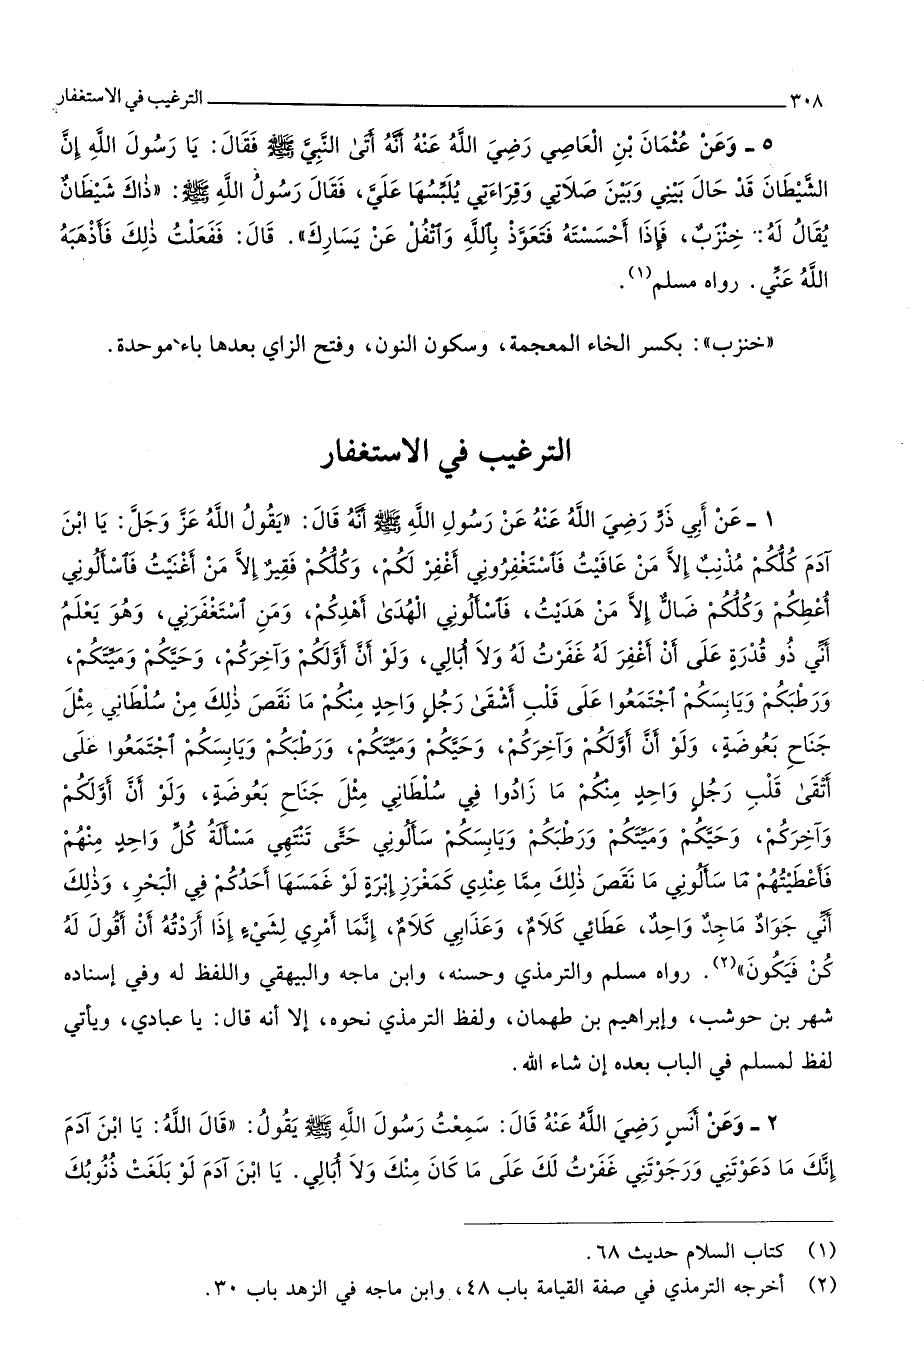 ٣٠٨ الترغيب في الاستغفار
٥ ـ وَعَنْ عُثْمَانَ بْنِ الْعَاصِي رَضِيَ اللَّهُ عَنْهُ أَنَّهُ أَتَىٰ النَّبِيَّ ﷺ فَقَالَ: يَا رَسُولَ اللَّهِ إِنَّ
الشَّيْطَانَ قَدْ حَالَ بَيْنِي وَبَيْنَ صَلَاتِي وَقِرَاءَتِي يُلَبِّسُهَا عَلَيَّ، فَقَالَ رَسُولُ اللَّهِ ﷺ: «ذَاكَ شَيْطَانٌ
يُقَالُ لَهُ: خِنْزَبٌ، فَإِذَا أَحْسَسْتَهُ فَتَعَوَّذْ بِٱللَّهِ وَٱتْفُلْ عَنْ يَسَارِكَ». قَالَ: فَفَعَلْتُ ذٰلِكَ فَأَذْهَبَهُ
اللَّهُ عَنِّي. رواه مسلم(١).
«خنزب»: بكسر الخاء المعجمة، وسكون النون، وفتح الزاي بعدها باء موحدة.
الترغيب في الاستغفار
١ ـ عَنْ أَبِي ذَرٍّ رَضِيَ اللَّهُ عَنْهُ عَنْ رَسُولِ اللَّهِ ﷺ أَنَّهُ قَالَ: «يَقُولُ اللَّهُ عَزَّ وَجَلَّ: يَا ابْنَ
آدَمَ كُلُّكُمْ مُذْنِبٌ إِلاَّ مَنْ عَافَيْتُ فَٱسْتَغْفِرُونِي أَغْفِرْ لَكُمْ، وَكُلُّكُمْ فَقِيرٌ إِلاَّ مَنْ أَغْنَيْتُ فَٱسْأَلُونِي
أُعْطِكُمْ وَكُلُّكُمْ ضَالٌّ إِلاَّ مَنْ هَدَيْتُ، فَٱسْأَلُونِي الْهُدَىٰ أَهْدِكُمْ، وَمَنِ ٱسْتَغْفَرَنِي، وَهُوَ يَعْلَمُ
أَنِّي ذُو قُدْرَةٍ عَلَى أَنْ أَغْفِرَ لَهُ غَفَرْتُ لَهُ وَلاَ أُبَالِي، وَلَوْ أَنَّ أَوَّلَكُمْ وَآخِرَكُمْ، وَحَيَّكُمْ وَمَيِّتَكُمْ،
وَرَطْبَكُمْ وَيَابِسَكُمْ ٱجْتَمَعُوا عَلَى قَلْبِ أَشْقَىٰ رَجُلٍ وَاحِدٍ مِنْكُمْ مَا نَقَصَ ذٰلِكَ مِنْ سُلْطَانِي مِثْلَ
جَنَاحِ بَعُوضَةٍ، وَلَوْ أَنَّ أَوَّلَكُمْ وَآخِرَكُمْ، وَحَيَّكُمْ وَمَيِّتَكُمْ، وَرَطْبَكُمْ وَيَابِسَكُمْ ٱجْتَمَعُوا عَلَى
أَتْقَىٰ قَلْبِ رَجُلٍ وَاحِدٍ مِنْكُمْ مَا زَادُوا فِي سُلْطَانِي مِثْلَ جَنَاحِ بَعُوضَةٍ، وَلَوْ أَنَّ أَوَّلَكُمْ
وَآخِرَكُمْ، وَحَيَّكُمْ وَمَيِّتَكُمْ وَرَطْبَكُمْ وَيَابِسَكُمْ سَأَلُونِي حَتَّى تَنْتَهِي مَسْأَلَةُ كُلِّ وَاحِدٍ مِنْهُمْ
فَأَعْطَيْتُهُمْ مَا سَأَلُونِي مَا نَقَصَ ذٰلِكَ مِمَّا عِنْدِي كَمَغْرَزِ إِبْرَةٍ لَوْ غَمَسَهَا أَحَدُكُمْ فِي الْبَحْرِ، وَذٰلِكَ
أَنِّي جَوَادٌ مَاجِدٌ وَاحِدٌ، عَطَائِي كَلَامٌ، وَعَذَابِي كَلَامٌ، إِنَّمَا أَمْرِي لِشَيْءٍ إِذَا أَرَدْتُهُ أَنْ أَقُولَ لَهُ
كُنْ فَيَكُونَ»(٢). رواه مسلم والترمذي وحسنه، وابن ماجه والبيهقي واللفظ له وفي إسناده
شهر بن حوشب، وإبراهيم بن طهمان، ولفظ الترمذي نحوه، إلا أنه قال: يا عبادي، ويأتي
لفظ لمسلم في الباب بعده إن شاء الله.
٢ ـ وَعَنْ أَنَسٍ رَضِيَ اللَّهُ عَنْهُ قَالَ: سَمِعْتُ رَسُولَ اللَّهِ ﷺ يَقُولُ: «قَالَ اللَّهُ: يَا ابْنَ آدَمَ
إِنَّكَ مَا دَعَوْتَنِي وَرَجَوْتَنِي غَفَرْتُ لَكَ عَلَى مَا كَانَ مِنْكَ وَلاَ أُبَالِي. يَا ابْنَ آدَمَ لَوْ بَلَغَتْ ذُنُوبُكَ
(١) كتاب السلام حديث ٦٨.
(٢) أخرجه الترمذي في صفة القيامة باب ٤٨، وابن ماجه في الزهد باب ٣٠.